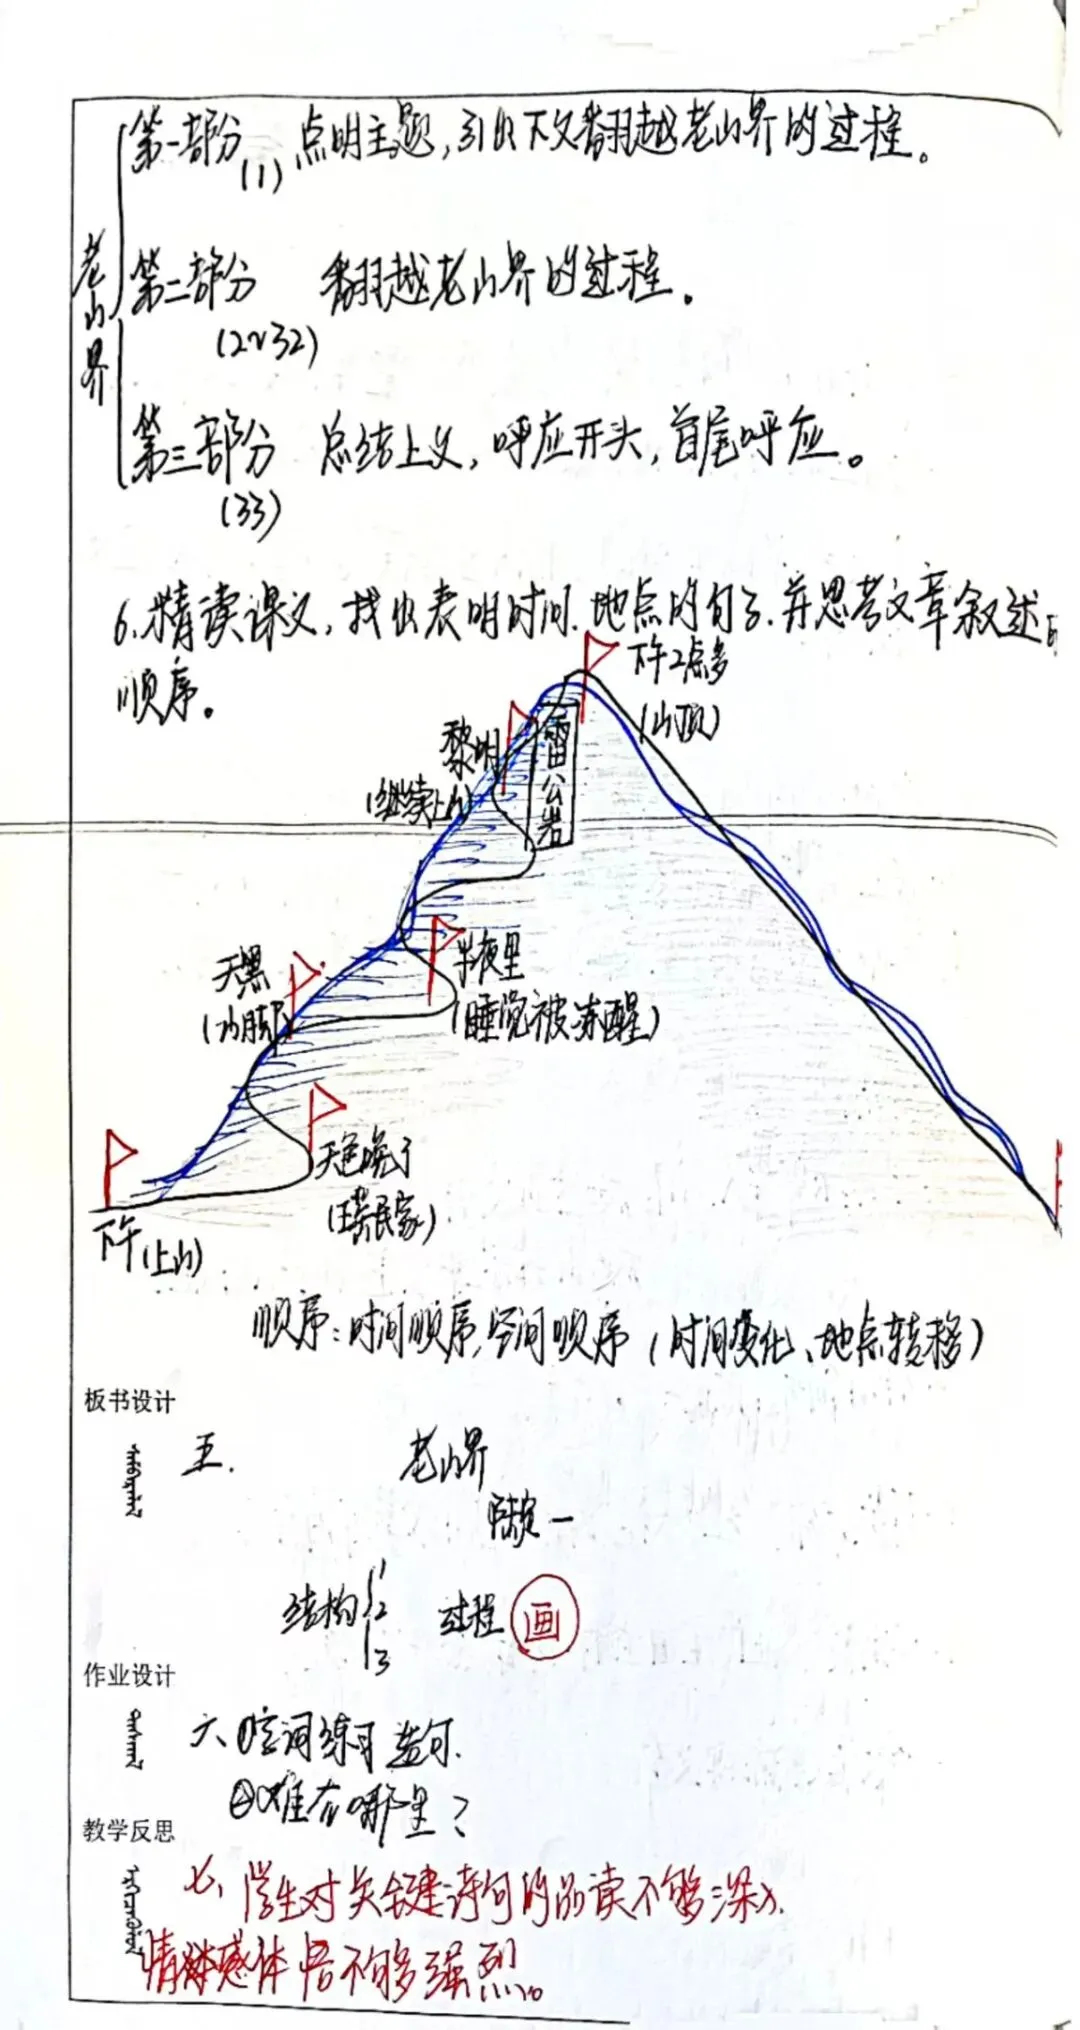 老山界
第一部分 点明主题,引出下文翻越老山界的过程。
(1)
第二部分 翻越老山界的过程。
(2~32)
第三部分 总结上文,呼应开头,首尾呼应。
(33)
6.精读课文,找出表明时间、地点的句子.并思考文章叙述的
顺序。
下午2点多
(山顶)
雷公岩
黎明
(继续上山)
半夜里
(睡觉被冻醒)
天黑
(山脚)
天色晚了
(瑶民家)
下午(上山)
顺序:时间顺序,空间顺序(时间变化、地点转移)
板书设计
五. 老山界
陆定一
结构{1 2 3 过程 画
作业设计
六、①字词练习 造句.
②难在哪里?
教学反思
七、学生对关键诗句的品读不够深入
情感体悟不够强烈。